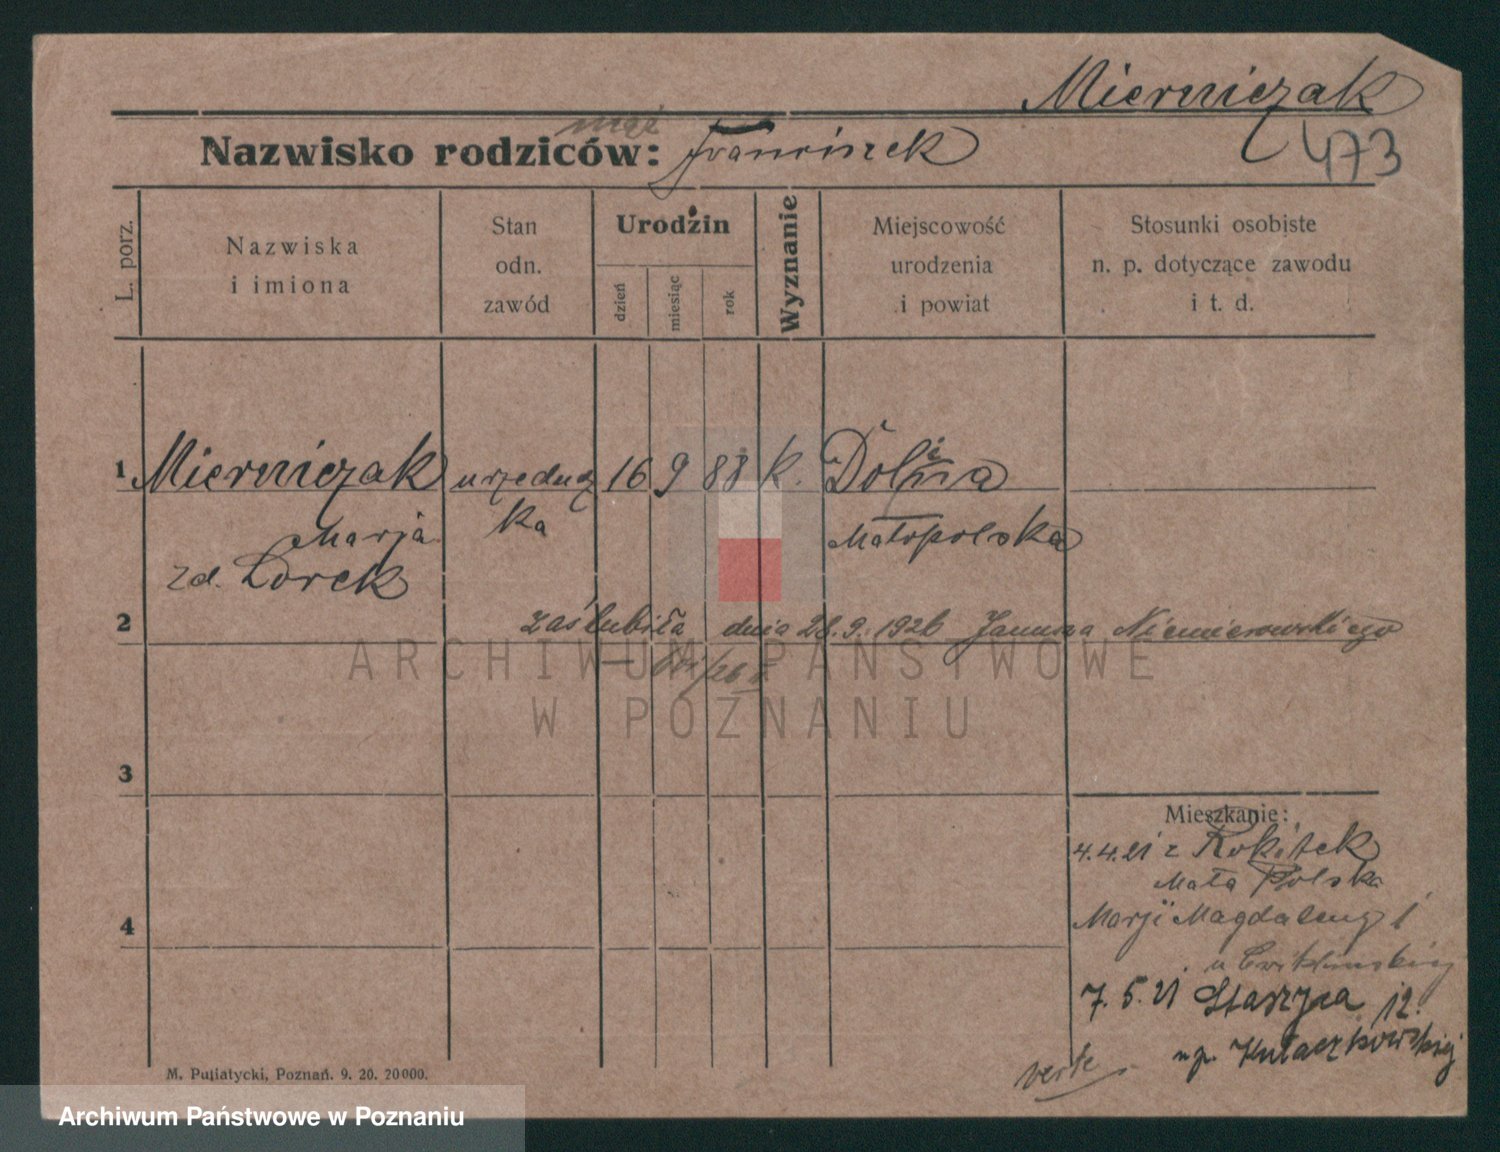 Mierniczak
473
mąż
Nazwisko rodziców: Franciszek
L. porz.
Nazwiska
i imiona
Stan
odn.
zawód
Urodzin
dzień
miesiąc
rok
Wyznanie
Miejscowość
urodzenia
i powiat
Stosunki osobiste
n. p. dotyczące zawodu
i t. d.
1 Mierniczak urzędnicz 16 9 88 k. Dolina
ka Małopolska
Marja
zd. Lorek
2 zaślubiła dnia 28.9.1926 Janusza Niemierowskiego
ARCHIWUM PAŃSTWOWE
W POZNANIU
3
Mieszkanie:
4.4.21 z Rokitek
Mała Polska
4 Marji Magdaleny 1
u Ćwiklinskiej
7.5.21 Staszyca 12.
up. Kułaczkowskiej
verte
M. Putiatycki, Poznań. 9. 20. 20000.
Archiwum Państwowe w Poznaniu